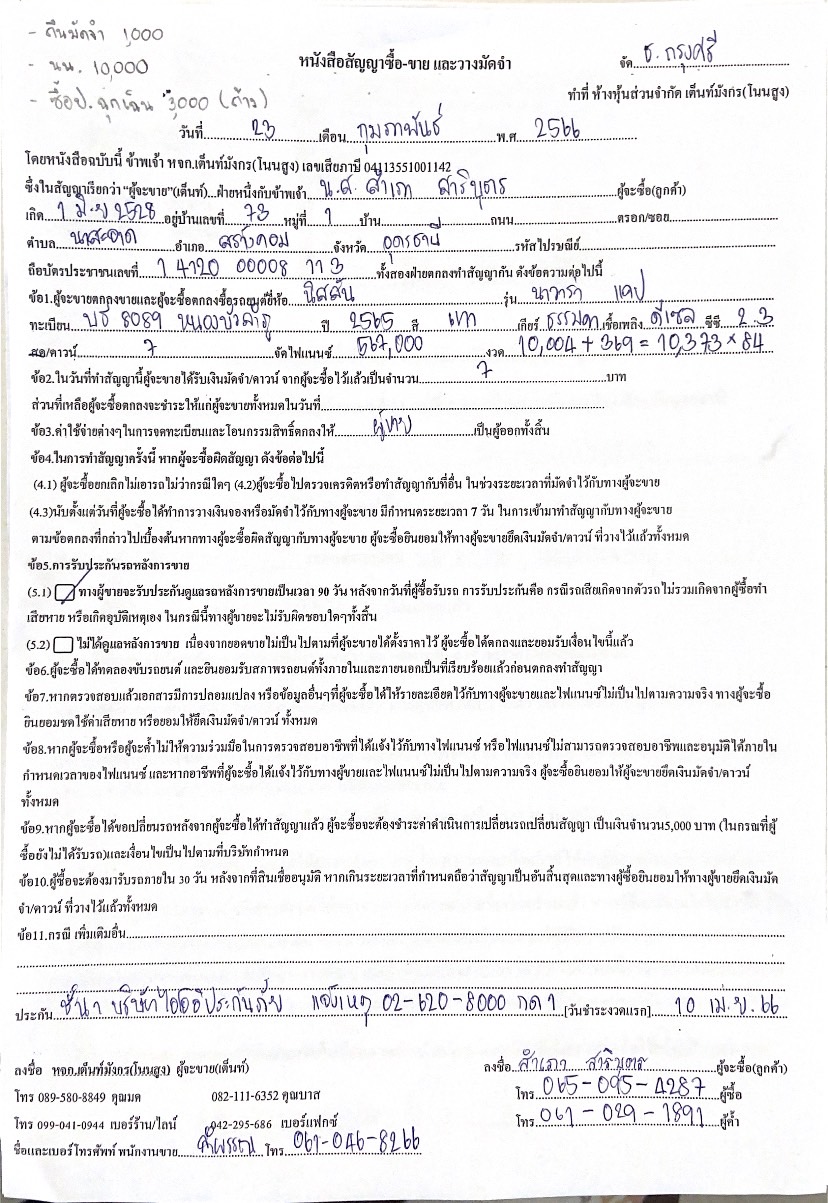 - คืนมัดจำ 1,000
- นน. 10,000
- ซื้อป. ฉุกเฉิน 3,000 (ค้าง)
หนังสือสัญญาซื้อ-ขาย และวางมัดจำ
จัด ธ. กรุงศรี
ทำที่ ห้างหุ้นส่วนจำกัด เต็นท์มังกร(โนนสูง)
วันที่ 23 เดือน กุมภาพันธ์ พ.ศ 2566
โดยหนังสือฉบับนี้ ข้าพเจ้า หจก.เต็นท์มังกร(โนนสูง) เลขเสียภาษี 0413551001142
ซึ่งในสัญญาเรียกว่า "ผู้จะขาย"(เต็นท์)...ฝ่ายหนึ่งกับข้าพเจ้า น.ส. สำเภา สาริบุตร ผู้จะซื้อ(ลูกค้า)
เกิด 1 มิ.ย 2528 อยู่บ้านเลขที่ 73 หมู่ที่ 1 บ้าน ถนน ตรอก/ซอย
ตำบล นาสะอาด อำเภอ สร้างคอม จังหวัด อุดรธานี รหัสไปรษณีย์
ถือบัตรประชาชนเลขที่ 1 4120 00008 11 3 ทั้งสองฝ่ายตกลงทำสัญญากัน ดังข้อความต่อไปนี้
ข้อ1.ผู้จะขายตกลงขายและผู้จะซื้อตกลงซื้อรถยนต์ยี่ห้อ นิสสัน รุ่น นาวาร่า แคป
ทะเบียน บร 8089 หนองบัวลำภู ปี 2565 สี เทา เกียร์ ธรรมดา เชื้อเพลิง ดีเซล ซีซี 2.3
สด/ดาวน์ 7 จัดไฟแนนซ์ 567,000 งวด 10,004 + 369 = 10,373 × 84
ข้อ2.ในวันที่ทำสัญญานี้ผู้จะขายได้รับเงินมัดจำ/ดาวน์ จากผู้จะซื้อไว้แล้วเป็นจำนวน 7 บาท
ส่วนที่เหลือผู้จะซื้อตกลงจะชำระให้แก่ผู้จะขายทั้งหมดในวันที่
ข้อ3.ค่าใช้จ่ายต่างๆในการจดทะเบียนและโอนกรรมสิทธิ์ตกลงให้ ผู้ขาย เป็นผู้ออกทั้งสิ้น
ข้อ4.ในการทำสัญญาครั้งนี้ หากผู้จะซื้อผิดสัญญา ดังข้อต่อไปนี้
(4.1) ผู้จะซื้อยกเลิกไม่เอารถไม่ว่ากรณีใดๆ (4.2)ผู้จะซื้อไปตรวจเครดิตหรือทำสัญญากับที่อื่น ในช่วงระยะเวลาที่มัดจำไว้กับทางผู้จะขาย
(4.3)นับตั้งแต่วันที่ผู้จะซื้อได้ทำการวางเงินจองหรือมัดจำไว้กับทางผู้จะขาย มีกำหนดระยะเวลา 7 วัน ในการเข้ามาทำสัญญากับทางผู้จะขาย
ตามข้อตกลงที่กล่าวไปเบื้องต้นหากทางผู้จะซื้อผิดสัญญากับทางผู้จะขาย ผู้จะซื้อยินยอมให้ทางผู้จะขายยึดเงินมัดจำ/ดาวน์ ที่วางไว้แล้วทั้งหมด
ข้อ5.การรับประกันรถหลังการขาย
(5.1) ทางผู้ขายจะรับประกันดูแลรถหลังการขายเป็นเวลา 90 วัน หลังจากวันที่ผู้ซื้อรับรถ การรับประกันคือ กรณีรถเสียเกิดจากตัวรถไม่รวมเกิดจากผู้ซื้อทำ
เสียหาย หรือเกิดอุบัติเหตุเอง ในกรณีนี้ทางผู้ขายจะไม่รับผิดชอบใดๆทั้งสิ้น
(5.2) ไม่ได้ดูแลหลังการขาย เนื่องจากยอดขายไม่เป็นไปตามที่ผู้จะขายได้ตั้งราคาไว้ ผู้จะซื้อได้ตกลงและยอมรับเงื่อนไขนี้แล้ว
ข้อ6.ผู้จะซื้อได้ทดลองขับรถยนต์ และยินยอมรับสภาพรถยนต์ทั้งภายในและภายนอกเป็นที่เรียบร้อยแล้วก่อนตกลงทำสัญญา
ข้อ7.หากตรวจสอบแล้วเอกสารมีการปลอมแปลง หรือข้อมูลอื่นๆที่ผู้จะซื้อได้ให้รายละเอียดไว้กับทางผู้จะขายและไฟแนนซ์ไม่เป็นไปตามความจริง ทางผู้จะซื้อ
ยินยอมชดใช้ค่าเสียหาย หรือยอมให้ยึดเงินมัดจำ/ดาวน์ ทั้งหมด
ข้อ8.หากผู้จะซื้อหรือผู้จะค้ำไม่ให้ความร่วมมือในการตรวจสอบอาชีพที่ได้แจ้งไว้กับทางไฟแนนซ์ หรือไฟแนนซ์ไม่สามารถตรวจสอบอาชีพและอนุมัติได้ภายใน
กำหนดเวลาของไฟแนนซ์ และหากอาชีพที่ผู้จะซื้อได้แจ้งไว้กับทางผู้ขายและไฟแนนซ์ไม่เป็นไปตามความจริง ผู้จะซื้อยินยอมให้ผู้จะขายยึดเงินมัดจำ/ดาวน์
ทั้งหมด
ข้อ9.หากผู้จะซื้อได้ขอเปลี่ยนรถหลังจากผู้จะซื้อได้ทำสัญญาแล้ว ผู้จะซื้อจะต้องชำระค่าดำเนินการเปลี่ยนรถเปลี่ยนสัญญา เป็นเงินจำนวน5,000 บาท (ในกรณที่ผู้
ซื้อยังไม่ได้รับรถ)และเงื่อนไขเป็นไปตามที่บริษัทกำหนด
ข้อ10.ผู้ซื้อจะต้องมารับรถภายใน 30 วัน หลังจากที่สินเชื่ออนุมัติ หากเกินระยะเวลาที่กำหนดถือว่าสัญญาเป็นอันสิ้นสุดและทางผู้ซื้อยินยอมให้ทางผู้ขายยึดเงินมัด
จำ/ดาวน์ ที่วางไว้แล้วทั้งหมด
ข้อ11.กรณี เพิ่มเติมอื่น
ประกัน ชั้น 1 บริษัทไอโออิประกันภัย แจ้งเหตุ 02-620-8000 กด 1 [วันชำระงวดแรก] 10 เม.ย. 66
ลงชื่อ หจก.เต็นท์มังกร(โนนสูง) ผู้จะขาย(เต็นท์)
ลงชื่อ สำเภา สาริบุตร ผู้จะซื้อ(ลูกค้า)
โทร 089-580-8849 คุณมด 082-111-6352 คุณบาส
โทร 065-095-4287 ผู้ซื้อ
โทร 099-041-0944 เบอร์ร้าน/ไลน์ 042-295-686 เบอร์แฟกซ์
โทร 061-029-1891 ผู้ค้ำ
ชื่อและเบอร์โทรศัพท์ พนักงานขาย โทร 061-046-8266